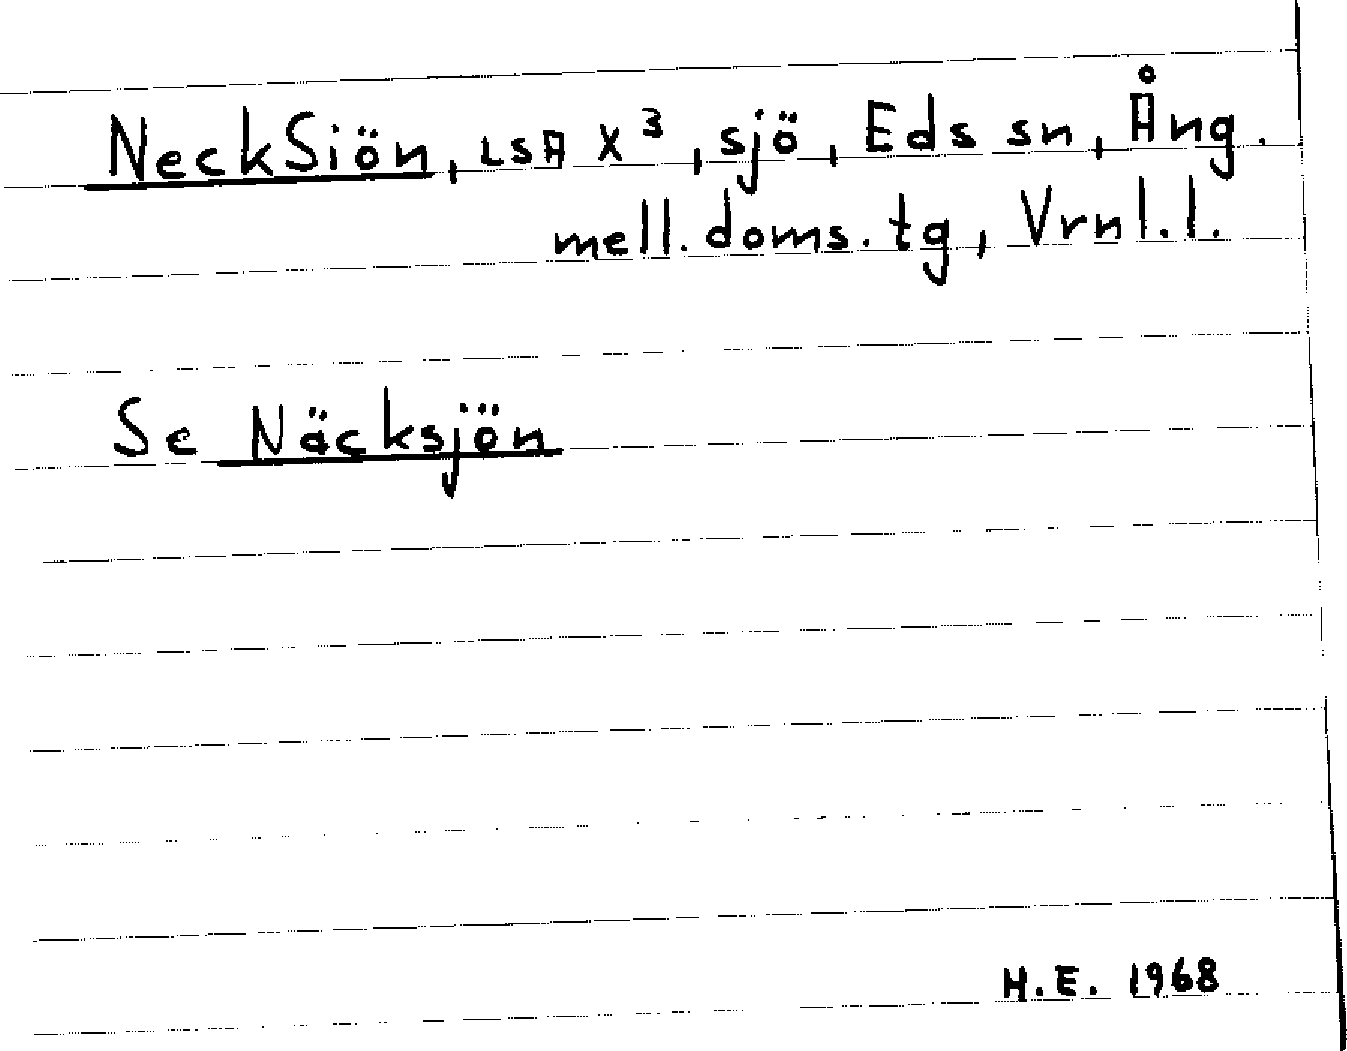 NeckSiön, LSA X³, sjö, Eds sn, Ång.
mell. doms. tg, Vrnl. l.
Se Näcksjön
H.E. 1968